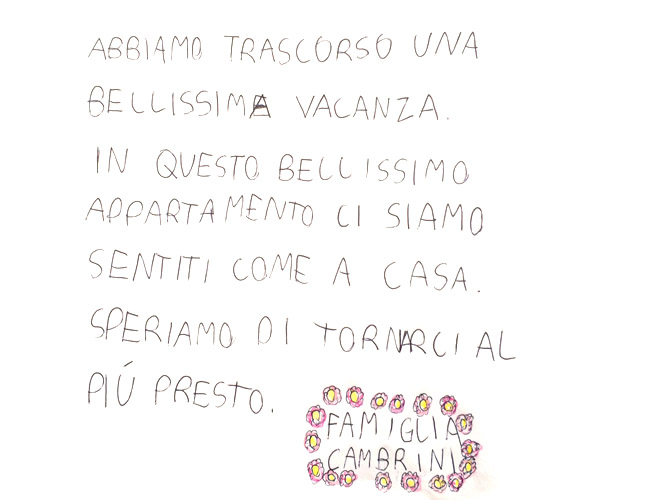 ABBIAMO TRASCORSO UNA
BELLISSIMA VACANZA.
IN QUESTO BELLISSIMO
APPARTAMENTO CI SIAMO
SENTITI COME A CASA.
SPERIAMO DI TORNARCI AL
PIÚ PRESTO.
FAMIGLIA
CAMBRINI